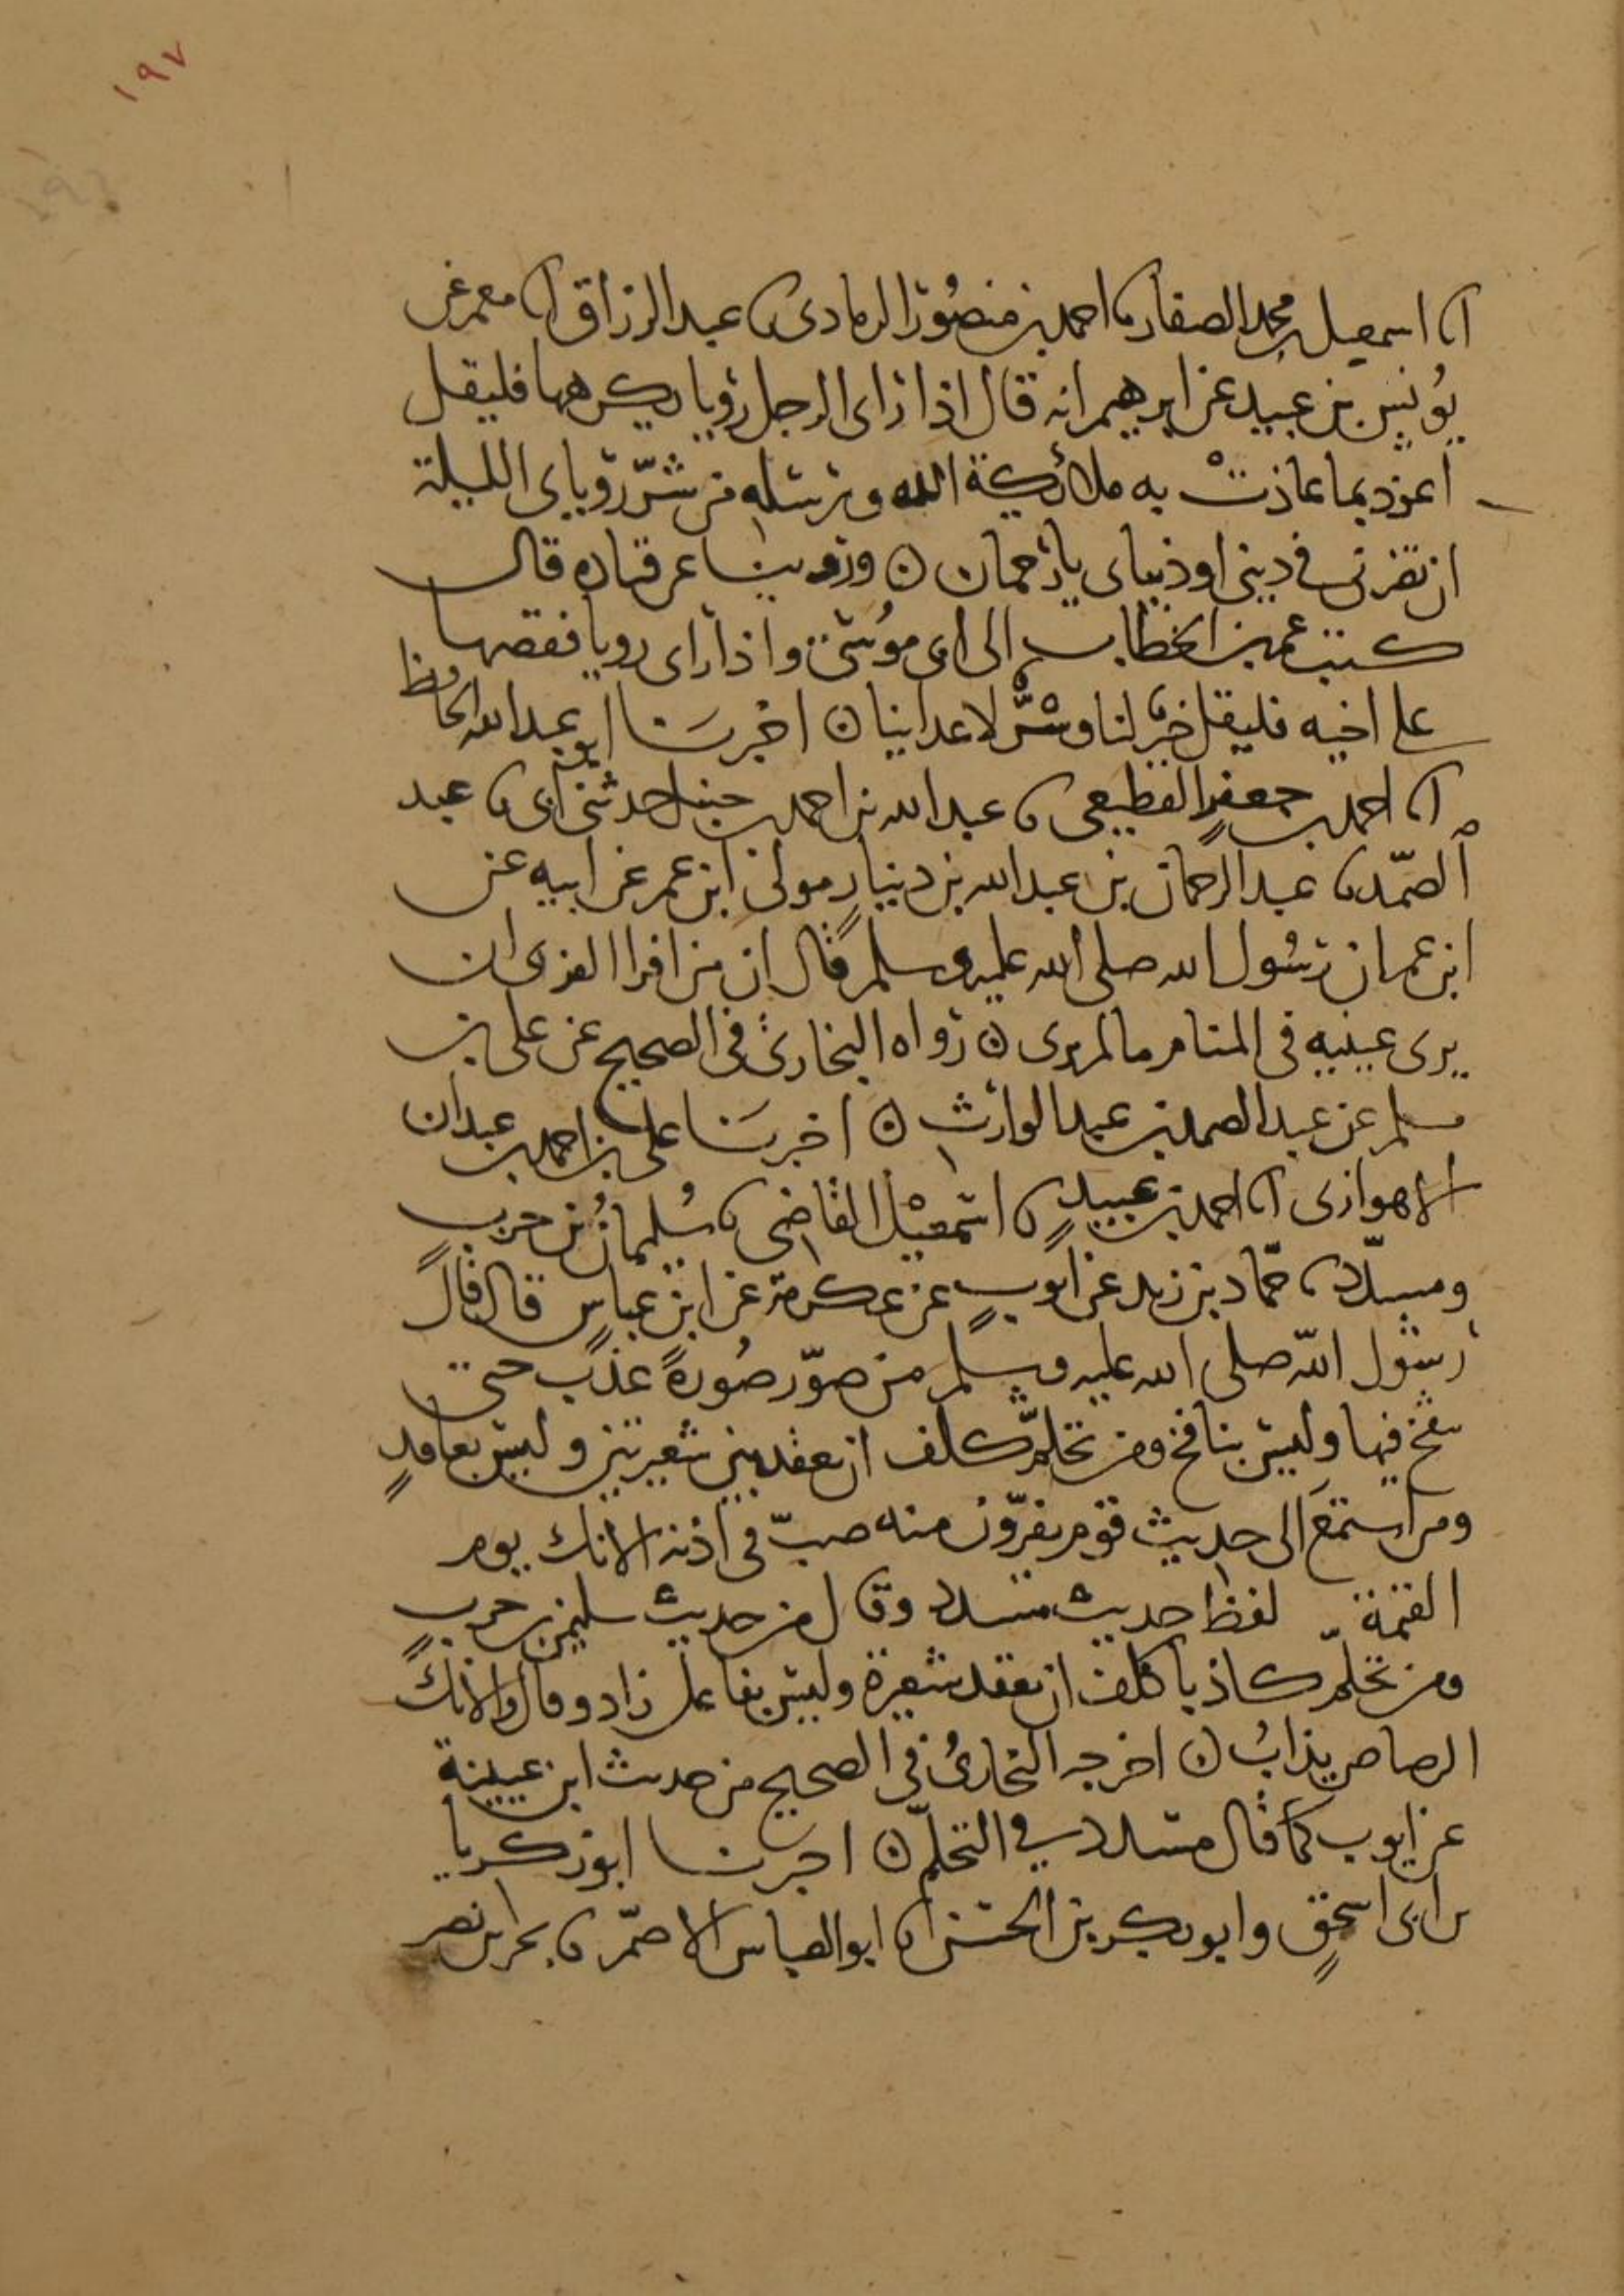 ١٩٧
انا اسمعيل بن محمد الصفار نا احمد بن منصور الرمادي نا عبد الرزاق انا معمر عن
يونس بن عبيد عن ابرهيم انه قال اذا راى الرجل رؤيا يكرهها فليقل
اعوذ بما عاذت به ملائكة الله ورسله من شر رؤياي الليلة
ان تضرني في ديني او دنياي يا رحمان ن وروينا عن قتاده قال
كتب عمر بن الخطاب الى ابي موسى واذا راى رويا فقصها
على اخيه فليقل خير لنا وشر لاعداينا ن اخبرنا ابو عبد الله الحافظ
انا احمد بن جعفر القطيعي نا عبد الله بن احمد بن حنبل حدثني ابي نا عبد
الصمد نا عبد الرحمان بن عبد الله بن دينار مولى ابن عمر عن ابيه عن
ابن عمر ان رسول الله صلى الله عليه وسلم قال ان من افرا الفرى ان
يرى عينيه في المنام ما لم يرى ن رواه البخاري في الصحيح عن علي بن
مسلم عن عبد الصمد بن عبد الوارث ن اخبرنا علي بن احمد بن عبدان
الاهوازي انا احمد بن عبيد نا اسمعيل القاضي نا سليمان بن حرب
ومسدد نا حماد بن زيد عن ايوب عن عكرمة عن ابن عباس قال قال
رسول الله صلى الله عليه وسلم من صور صورة عذب حتى
ينفخ فيها وليس بنافخ ومن تحلم كلف ان يعقد بين شعيرتين وليس بعاقد
ومن استمع الى حديث قوم يفرون منه صب في اذنه الانك يوم
القيمة لفظ حديث مسدد وقال من حديث سليمن بن حرب
ومن تحلم كاذبا كلف ان يعقد شعيرة وليس بفاعل زاد وقال والانك
الرصاص يذاب ن اخرجه البخاري في الصحيح من حديث ابن عيينة
عن ايوب كما قال مسدد في التحلم ن اخبرنا ابو زكريا
بن ابي اسحق وابو بكر بن الحسن نا ابو العباس الاصم نا بحر بن نصر